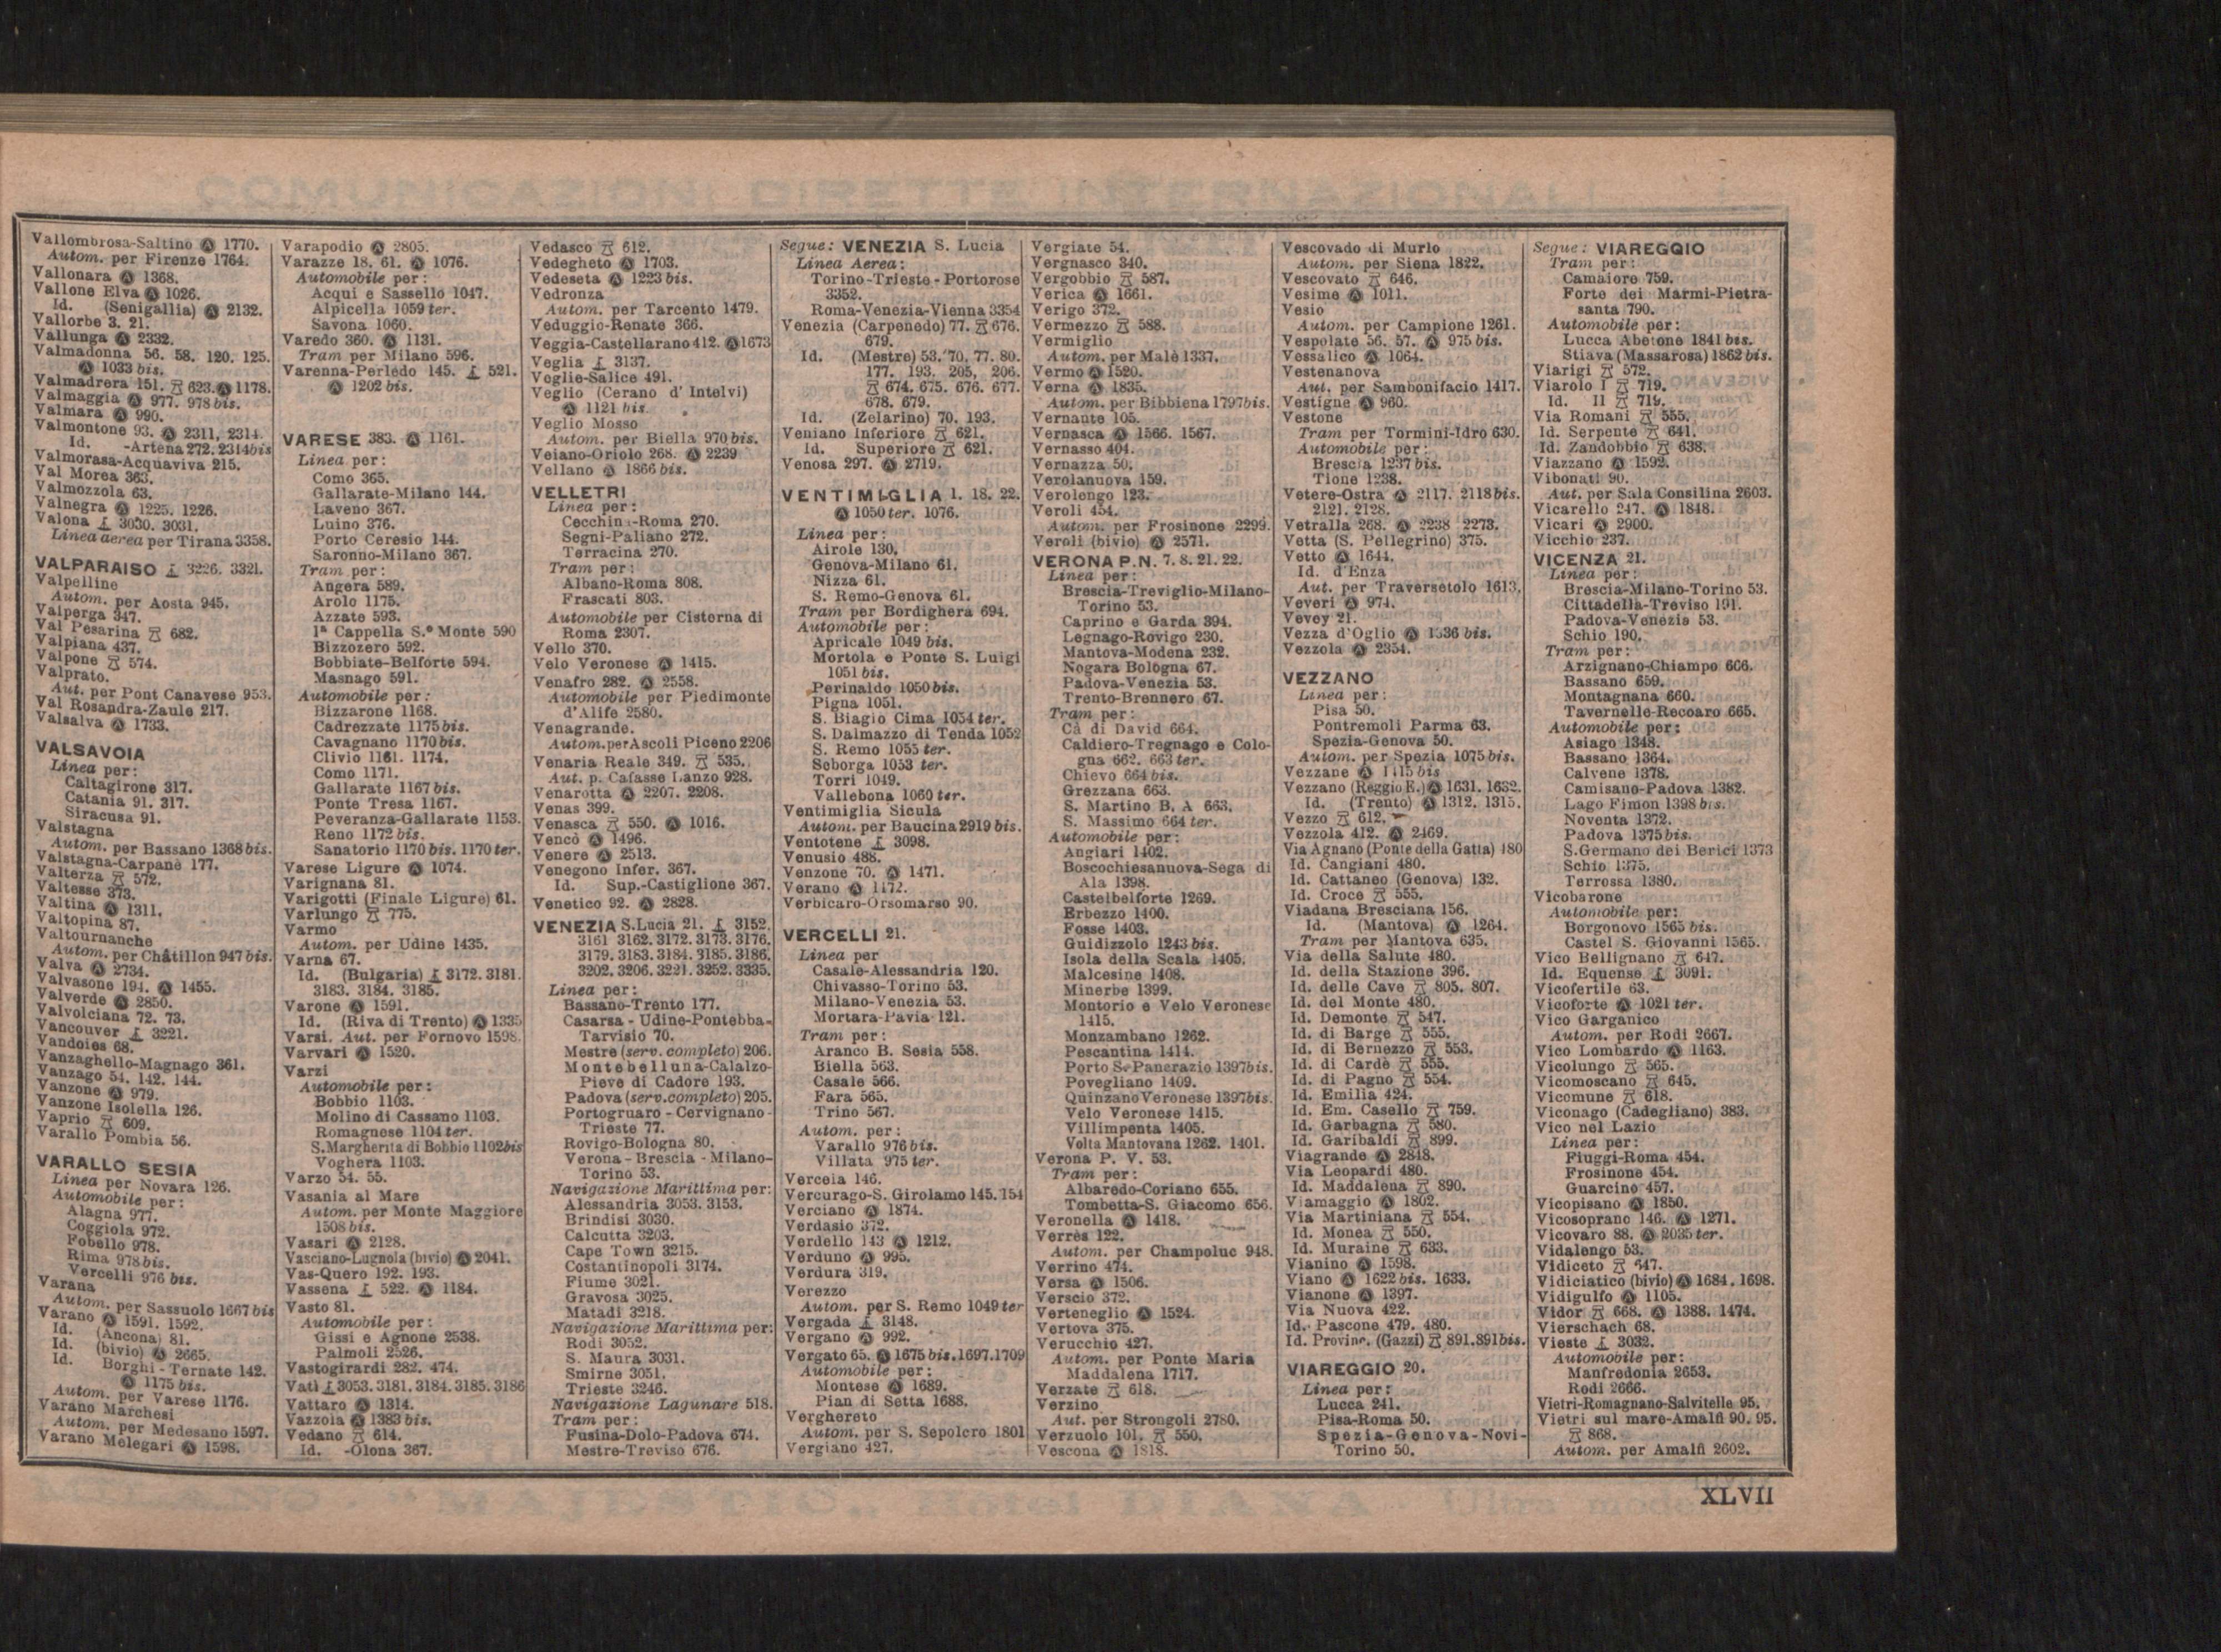 Vallombrosa-Saltino Ⓐ 1770.
Autom. per Firenze 1764.
Vallonara Ⓐ 1368.
Vallone Elva Ⓐ 1026.
Id. (Senigallia) Ⓐ 2132.
Vallorbe 3. 21.
Vallunga Ⓐ 2332.
Valmadonna 56. 58. 120. 125.
Ⓐ 1033 bis.
Valmadrera 151. 623. Ⓐ 1178.
Valmaggia Ⓐ 977. 978 bis.
Valmara Ⓐ 990.
Valmontone 93. Ⓐ 2311, 2314.
Id. -Artena 272. 2314 bis
Valmorasa-Acquaviva 215.
Val Morea 363.
Valmozzola 63.
Valnegra Ⓐ 1225. 1226.
Valona 3030. 3031.
Linea aerea per Tirana 3358.
VALPARAISO 3226. 3321.
Valpelline
Autom. per Aosta 945.
Valperga 347.
Val Pesarina 682.
Valpiana 437.
Valpone 574.
Valprato.
Aut. per Pont Canavese 953.
Val Rosandra-Zaule 217.
Valsalva Ⓐ 1733.
VALSAVOIA
Linea per:
Caltagirone 317.
Catania 91. 317.
Siracusa 91.
Valstagna
Autom. per Bassano 1368 bis.
Valstagna-Carpanè 177.
Valterza 572.
Valtesse 373.
Valtina Ⓐ 1311.
Valtopina 87.
Valtournanche
Autom. per Châtillon 947 bis.
Valva Ⓐ 2734.
Valvasone 194. Ⓐ 1455.
Valverde Ⓐ 2850.
Valvolciana 72. 73.
Vancouver 3221.
Vandoies 68.
Vanzaghello-Magnago 361.
Vanzago 54. 142. 144.
Vanzone Ⓐ 979.
Vanzone Isolella 126.
Vaprio 609.
Varallo Pombia 56.
VARALLO SESIA
Linea per Novara 126.
Automobile per:
Alagna 977.
Coggiola 972.
Fobello 978.
Rima 978 bis.
Vercelli 976 bis.
Varana
Autom. per Sassuolo 1667 bis
Varano Ⓐ 1591. 1592.
Id. (Ancona) 81.
Id. (bivio) Ⓐ 2665.
Id. Borghi - Ternate 142.
Ⓐ 1175 bis.
Autom. per Varese 1176.
Varano Marchesi
Autom. per Medesano 1597.
Varano Melegari Ⓐ 1598.
Varapodio Ⓐ 2805.
Varazze 18. 61. Ⓐ 1076.
Automobile per:
Acqui e Sassello 1047.
Alpicella 1059 ter.
Savona 1060.
Varedo 360. Ⓐ 1131.
Tram per Milano 596.
Varenna-Perledo 145. 521.
Ⓐ 1202 bis.
VARESE 383. Ⓐ 1161.
Linea per:
Como 365.
Gallarate-Milano 144.
Laveno 367.
Luino 376.
Porto Ceresio 144.
Saronno-Milano 367.
Tram per:
Angera 589.
Arolo 1175.
Azzate 593.
1ª Cappella S.º Monte 590
Bizzozero 592.
Bobbiate-Belforte 594.
Masnago 591.
Automobile per:
Bizzarone 1168.
Cadrezzate 1175 bis.
Cavagnano 1170 bis.
Clivio 1161. 1174.
Como 1171.
Gallarate 1167 bis.
Ponte Tresa 1167.
Peveranza-Gallarate 1153.
Reno 1172 bis.
Sanatorio 1170 bis. 1170 ter.
Varese Ligure Ⓐ 1074.
Varignana 81.
Varigotti (Finale Ligure) 61.
Varlungo 775.
Varmo
Autom. per Udine 1435.
Varna 67.
Id. (Bulgaria) 3172. 3181.
3183. 3184. 3185.
Varone Ⓐ 1591.
Id. (Riva di Trento) Ⓐ 1335
Varsi. Aut. per Fornovo 1598.
Varvari Ⓐ 1520.
Varzi
Automobile per:
Bobbio 1103.
Molino di Cassano 1103.
Romagnese 1104 ter.
S. Margherita di Bobbio 1102 bis
Voghera 1103.
Varzo 54. 55.
Vasania al Mare
Autom. per Monte Maggiore
1508 bis.
Vasari Ⓐ 2128.
Vasciano-Lugnola (bivio) Ⓐ 2041.
Vas-Quero 192. 193.
Vassena 522. Ⓐ 1184.
Vasto 81.
Automobile per:
Gissi e Agnone 2538.
Palmoli 2526.
Vastogirardi 282. 474.
Vati 3053. 3181. 3184. 3185. 3186
Vattaro Ⓐ 1314.
Vazzola Ⓐ 1383 bis.
Vedano 614.
Id. -Olona 367.
Vedasco 612.
Vedegheto Ⓐ 1703.
Vedeseta Ⓐ 1223 bis.
Vedronza
Autom. per Tarcento 1479.
Veduggio-Renate 366.
Veggia-Castellarano 412. Ⓐ 1673
Veglia 3137.
Veglie-Salice 491.
Veglio (Cerano d' Intelvi)
Ⓐ 1121 bis.
Veglio Mosso
Autom. per Biella 970 bis.
Veiano-Oriolo 268. Ⓐ 2239
Vellano Ⓐ 1866 bis.
VELLETRI
Linea per:
Cecchina-Roma 270.
Segni-Paliano 272.
Terracina 270.
Tram per:
Albano-Roma 808.
Frascati 803.
Automobile per Cisterna di
Roma 2307.
Vello 370.
Velo Veronese Ⓐ 1415.
Venafro 282. Ⓐ 2558.
Automobile per Piedimonte
d'Alife 2580.
Venagrande.
Autom. per Ascoli Piceno 2206
Venaria Reale 349. 535.
Aut. p. Cafasse Lanzo 928.
Venarotta Ⓐ 2207. 2208.
Venas 399.
Venasca 550. Ⓐ 1016.
Vencò Ⓐ 1496.
Venere Ⓐ 2513.
Venegono Infer. 367.
Id. Sup.-Castiglione 367.
Venetico 92. Ⓐ 2828.
VENEZIA S. Lucia 21. 3152.
3161 3162. 3172. 3173. 3176.
3179. 3183. 3184. 3185. 3186.
3202. 3206. 3221. 3252. 3335.
Linea per:
Bassano-Trento 177.
Casarsa - Udine-Pontebba-
Tarvisio 70.
Mestre (serv. completo) 206.
Montebelluna-Calalzo-
Pieve di Cadore 193.
Padova (serv. completo) 205.
Portogruaro - Cervignano-
Trieste 77.
Rovigo-Bologna 80.
Verona - Brescia - Milano-
Torino 53.
Navigazione Marittima per:
Alessandria 3053. 3153.
Brindisi 3030.
Calcutta 3203.
Cape Town 3215.
Costantinopoli 3174.
Fiume 3021.
Gravosa 3025.
Matadi 3218.
Navigazione Marittima per:
Rodi 3052.
S. Maura 3031.
Smirne 3051.
Trieste 3246.
Navigazione Lagunare 518.
Tram per:
Fusina-Dolo-Padova 674.
Mestre-Treviso 676.
Segue: VENEZIA S. Lucia
Linea Aerea:
Torino-Trieste - Portorose
3352.
Roma-Venezia-Vienna 3354
Venezia (Carpenedo) 77. 676.
679.
Id. (Mestre) 53. 70. 77. 80.
177. 193. 205, 206.
674. 675. 676. 677.
678. 679.
Id. (Zelarino) 70. 193.
Veniano Inferiore 621.
Id. Superiore 621.
Venosa 297. Ⓐ 2719.
VENTIMIGLIA 1. 18. 22.
Ⓐ 1050 ter. 1076.
Linea per:
Airole 130.
Genova-Milano 61.
Nizza 61.
S. Remo-Genova 61.
Tram per Bordighera 694.
Automobile per:
Apricale 1049 bis.
Mortola e Ponte S. Luigi
1051 bis.
Perinaldo 1050 bis.
Pigna 1051.
S. Biagio Cima 1054 ter.
S. Dalmazzo di Tenda 1052
S. Remo 1055 ter.
Seborga 1053 ter.
Torri 1049.
Vallebona 1060 ter.
Ventimiglia Sicula
Autom. per Baucina 2919 bis.
Ventotene 3098.
Venusio 488.
Venzone 70. Ⓐ 1471.
Verano Ⓐ 1172.
Verbicaro-Orsomarso 90.
VERCELLI 21.
Linea per
Casale-Alessandria 120.
Chivasso-Torino 53.
Milano-Venezia 53.
Mortara-Pavia 121.
Tram per:
Aranco B. Sesia 558.
Biella 563.
Casale 566.
Fara 565.
Trino 567.
Autom. per:
Varallo 976 bis.
Villata 975 ter.
Verceia 146.
Vercurago-S. Girolamo 145. 154
Verciano Ⓐ 1874.
Verdasio 372.
Verdello 143 Ⓐ 1212.
Verduno Ⓐ 995.
Verdura 319.
Verezzo
Autom. per S. Remo 1049 ter
Vergada 3148.
Vergano Ⓐ 992.
Vergato 65. Ⓐ 1675 bis. 1697. 1709
Automobile per:
Montese Ⓐ 1689.
Pian di Setta 1688.
Verghereto
Autom. per S. Sepolcro 1801
Vergiano 427.
Vergiate 54.
Vergnasco 340.
Vergobbio 587.
Verica Ⓐ 1661.
Verigo 372.
Vermezzo 588.
Vermiglio
Autom. per Malè 1337.
Vermo Ⓐ 1520.
Verna Ⓐ 1835.
Autom. per Bibbiena 1797 bis.
Vernante 105.
Vernasca Ⓐ 1566. 1567.
Vernasso 404.
Vernazza 50.
Verolanuova 159.
Verolengo 123.
Veroli 454.
Autom. per Frosinone 2299.
Veroli (bivio) Ⓐ 2571.
VERONA P.N. 7. 8. 21. 22.
Linea per:
Brescia-Treviglio-Milano-
Torino 53.
Caprino e Garda 394.
Legnago-Rovigo 230.
Mantova-Modena 232.
Nogara Bologna 67.
Padova-Venezia 53.
Trento-Brennero 67.
Tram per:
Cà di David 664.
Caldiero-Tregnago e Colo-
gna 662. 663 ter.
Chievo 664 bis.
Grezzana 663.
S. Martino B. A 663.
S. Massimo 664 ter.
Automobile per:
Angiari 1402.
Boscochiesanuova-Sega di
Ala 1398.
Castelbelforte 1269.
Erbezzo 1400.
Fosse 1403.
Guidizzolo 1243 bis.
Isola della Scala 1405.
Malcesine 1408.
Minerbe 1399.
Montorio e Velo Veronese
1415.
Monzambano 1262.
Pescantina 1414.
Porto S. Pancrazio 1397 bis.
Povegliano 1409.
Quinzano Veronese 1397 bis.
Velo Veronese 1415.
Villimpenta 1405.
Volta Mantovana 1262. 1401.
Verona P. V. 53.
Tram per:
Albaredo-Coriano 655.
Tombetta-S. Giacomo 656.
Veronella Ⓐ 1418.
Verrès 122.
Autom. per Champoluc 948.
Verrino 474.
Versa Ⓐ 1506.
Verscio 372.
Verteneglio Ⓐ 1524.
Vertova 375.
Verucchio 427.
Autom. per Ponte Maria
Maddalena 1717.
Verzate 618.
Verzino
Aut. per Strongoli 2780.
Verzuolo 101. 550.
Vescona Ⓐ 1818.
Vescovado di Murlo
Autom. per Siena 1822.
Vescovato 646.
Vesime Ⓐ 1011.
Vesio
Autom. per Campione 1261.
Vespolate 56. 57. Ⓐ 975 bis.
Vessalico Ⓐ 1064.
Vestenanova
Aut. per Sambonifacio 1417.
Vestigne Ⓐ 960.
Vestone
Tram per Tormini-Idro 630.
Automobile per:
Brescia 1237 bis.
Tione 1238.
Vetere-Ostra Ⓐ 2117. 2118 bis.
2121. 2128.
Vetralla 268. Ⓐ 2238 2273.
Vetta (S. Pellegrino) 375.
Vetto Ⓐ 1644.
Id. d'Enza
Aut. per Traversetolo 1613.
Veveri Ⓐ 974.
Vevey 21.
Vezza d'Oglio Ⓐ 1336 bis.
Vezzola Ⓐ 2354.
VEZZANO
Linea per:
Pisa 50.
Pontremoli Parma 63.
Spezia-Genova 50.
Autom. per Spezia 1075 bis.
Vezzane Ⓐ 1415 bis
Vezzano (Reggio E.) Ⓐ 1631. 1632.
Id. (Trento) Ⓐ 1312. 1315.
Vezzo 612.
Vezzola 412. Ⓐ 2469.
Via Agnano (Ponte della Gatta) 480
Id. Cangiani 480.
Id. Cattaneo (Genova) 132.
Id. Croce 555.
Viadana Bresciana 156.
Id. (Mantova) Ⓐ 1264.
Tram per Mantova 635.
Via della Salute 480.
Id. della Stazione 396.
Id. delle Cave 805. 807.
Id. del Monte 480.
Id. Demonte 547.
Id. di Barge 555.
Id. di Bernezzo 553.
Id. di Cardè 555.
Id. di Pagno 554.
Id. Emilia 424.
Id. Em. Casello 759.
Id. Garbagna 580.
Id. Garibaldi 899.
Viagrande Ⓐ 2848.
Via Leopardi 480.
Id. Maddalena 890.
Viamaggio Ⓐ 1802.
Via Martiniana 554.
Id. Monea 550.
Id. Muraine 633.
Vianino Ⓐ 1598.
Viano Ⓐ 1622 bis. 1633.
Vianone Ⓐ 1397.
Via Nuova 422.
Id. Pascone 479. 480.
Id. Provinc. (Gazzi) 891. 891 bis.
VIAREGGIO 20.
Linea per:
Lucca 241.
Pisa-Roma 50.
Spezia-Genova-Novi-
Torino 50.
Segue: VIAREGGIO
Tram per:
Camaiore 759.
Forte dei Marmi-Pietra-
santa 790.
Automobile per:
Lucca Abetone 1841 bis.
Stiava (Massarosa) 1862 bis.
Viarigi 572.
Viarolo I 719.
Id. II 719.
Via Romani 555.
Id. Serpente 641.
Id. Zandobbio 638.
Viazzano Ⓐ 1592.
Vibonati 90.
Aut. per Sala Consilina 2603.
Vicarello 247. Ⓐ 1848.
Vicari Ⓐ 2900.
Vicchio 237.
VICENZA 21.
Linea per:
Brescia-Milano-Torino 53.
Cittadella-Treviso 191.
Padova-Venezia 53.
Schio 190.
Tram per:
Arzignano-Chiampo 666.
Bassano 659.
Montagnana 660.
Tavernelle-Recoaro 665.
Automobile per:
Asiago 1348.
Bassano 1364.
Calvene 1378.
Camisano-Padova 1382.
Lago Fimon 1398 bis.
Noventa 1372.
Padova 1375 bis.
S. Germano dei Berici 1373
Schio 1375.
Terrossa 1380.
Vicobarone
Automobile per:
Borgonovo 1565 bis.
Castel S. Giovanni 1565.
Vico Bellignano 647.
Id. Equense 3091.
Vicofertile 63.
Vicoforte Ⓐ 1021 ter.
Vico Garganico
Autom. per Rodi 2667.
Vico Lombardo Ⓐ 1163.
Vicolungo 565.
Vicomoscano 645.
Vicomune 618.
Viconago (Cadegliano) 383.
Vico nel Lazio
Linea per:
Fiuggi-Roma 454.
Frosinone 454.
Guarcino 457.
Vicopisano Ⓐ 1850.
Vicosoprano 146. Ⓐ 1271.
Vicovaro 88. Ⓐ 2035 ter.
Vidalengo 53.
Vidiceto 647.
Vidiciatico (bivio) Ⓐ 1684. 1698.
Vidigulfo Ⓐ 1105.
Vidor 668. Ⓐ 1388. 1474.
Vierschach 68.
Vieste 3032.
Automobile per:
Manfredonia 2653.
Rodi 2666.
Vietri-Romagnano-Salvitelle 95.
Vietri sul mare-Amalfi 90. 95.
868.
Autom. per Amalfi 2602.
XLVII